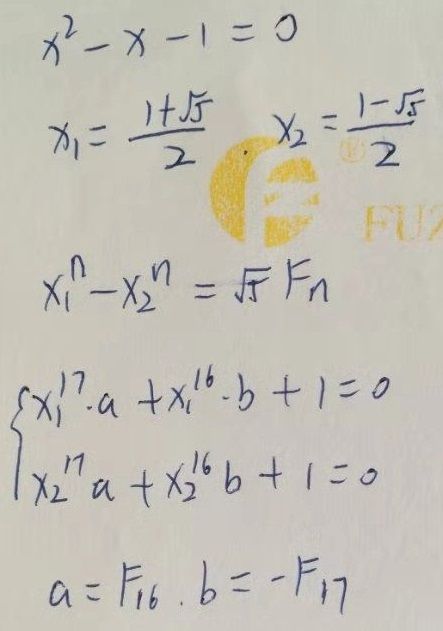 x² - x - 1 = 0
x₁ = (1+√5)/2 . x₂ = (1-√5)/2
®
FUZ
x₁ⁿ - x₂ⁿ = √5 Fₙ
{ x₁¹⁷·a + x₁¹⁶·b + 1 = 0
x₂¹⁷a + x₂¹⁶b + 1 = 0
a = F₁₆ . b = -F₁₇